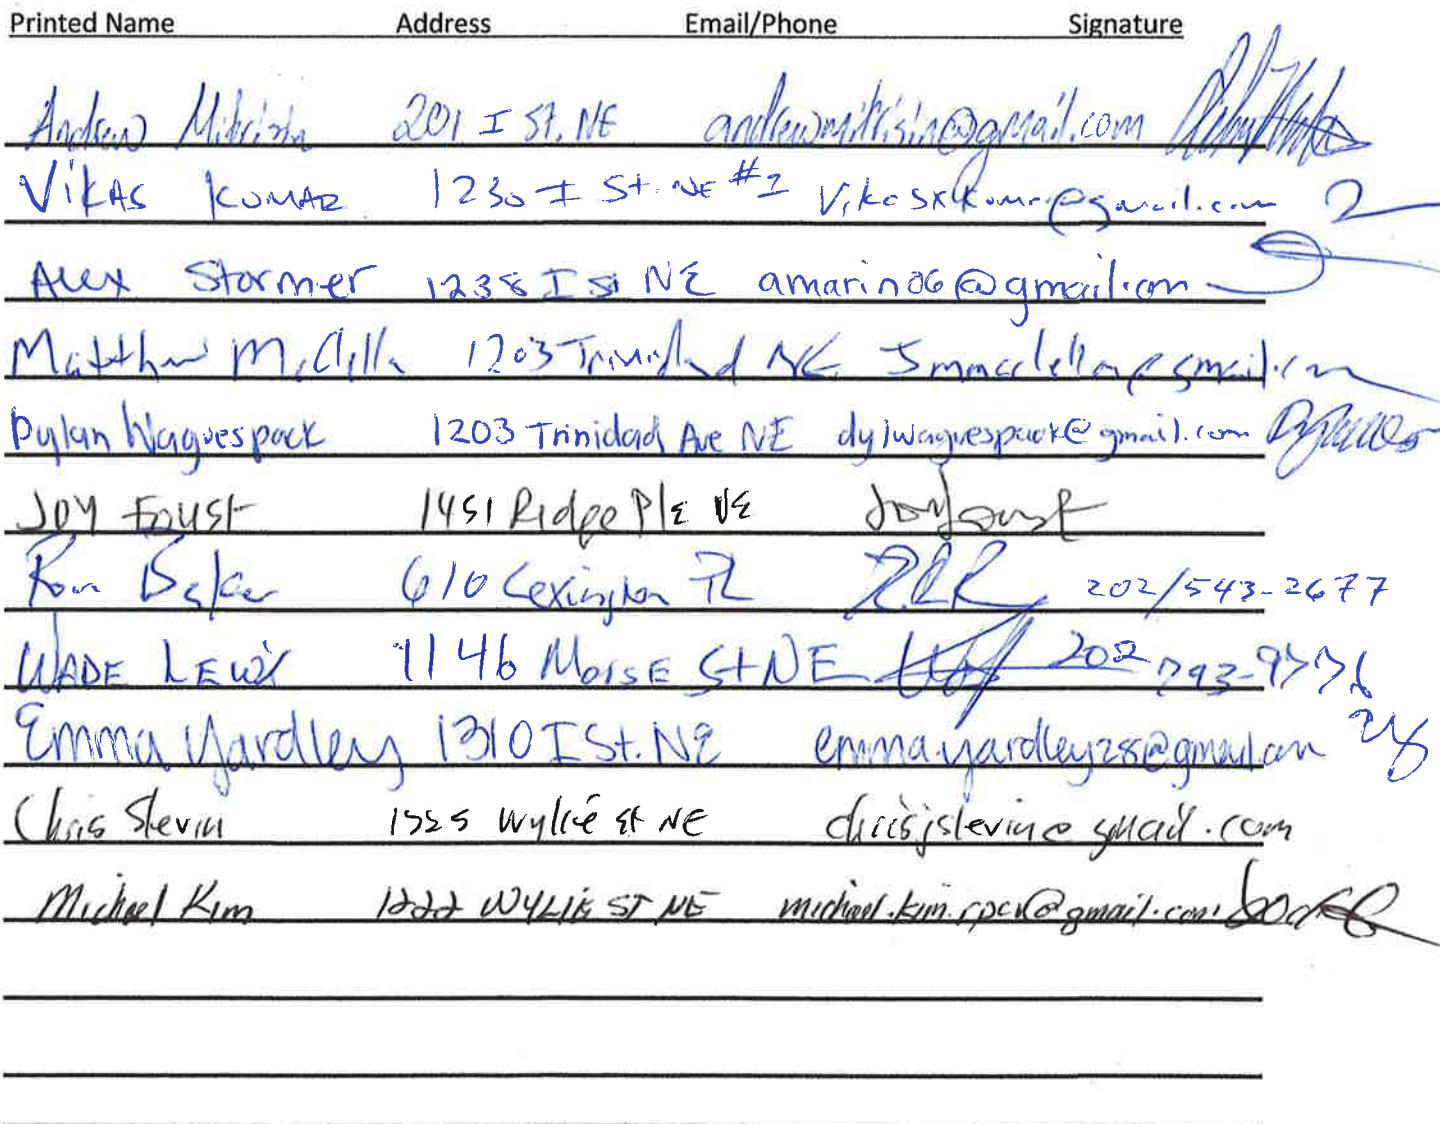 Printed Name Address Email/Phone Signature
Andrew Mitrisin 201 I St. NE andrewmitrisin@gmail.com
Vikas Kumar 1230 I St. NE #2
Alex Stormer 1238 I St NE amarin06@gmail.com
Matthew 1203 Trinidad NE
Dylan Waguespack 1203 Trinidad Ave NE dylwaguespack@gmail.com
Joy Foust 1451 Ridge Ple NE Joy Foust
Ron Baker 610 Lexington Pl 202/543-2677
WADE LEWIS 1146 MORSE St NE 202
Emma Yardley 1310 I St. NE emmayardley28@gmail.com
Chris Slevin 1325 Wylie St NE chrisjslevin@gmail.com
Michael Kim 1222 WYLIE ST NE michael.kim.rpcv@gmail.com